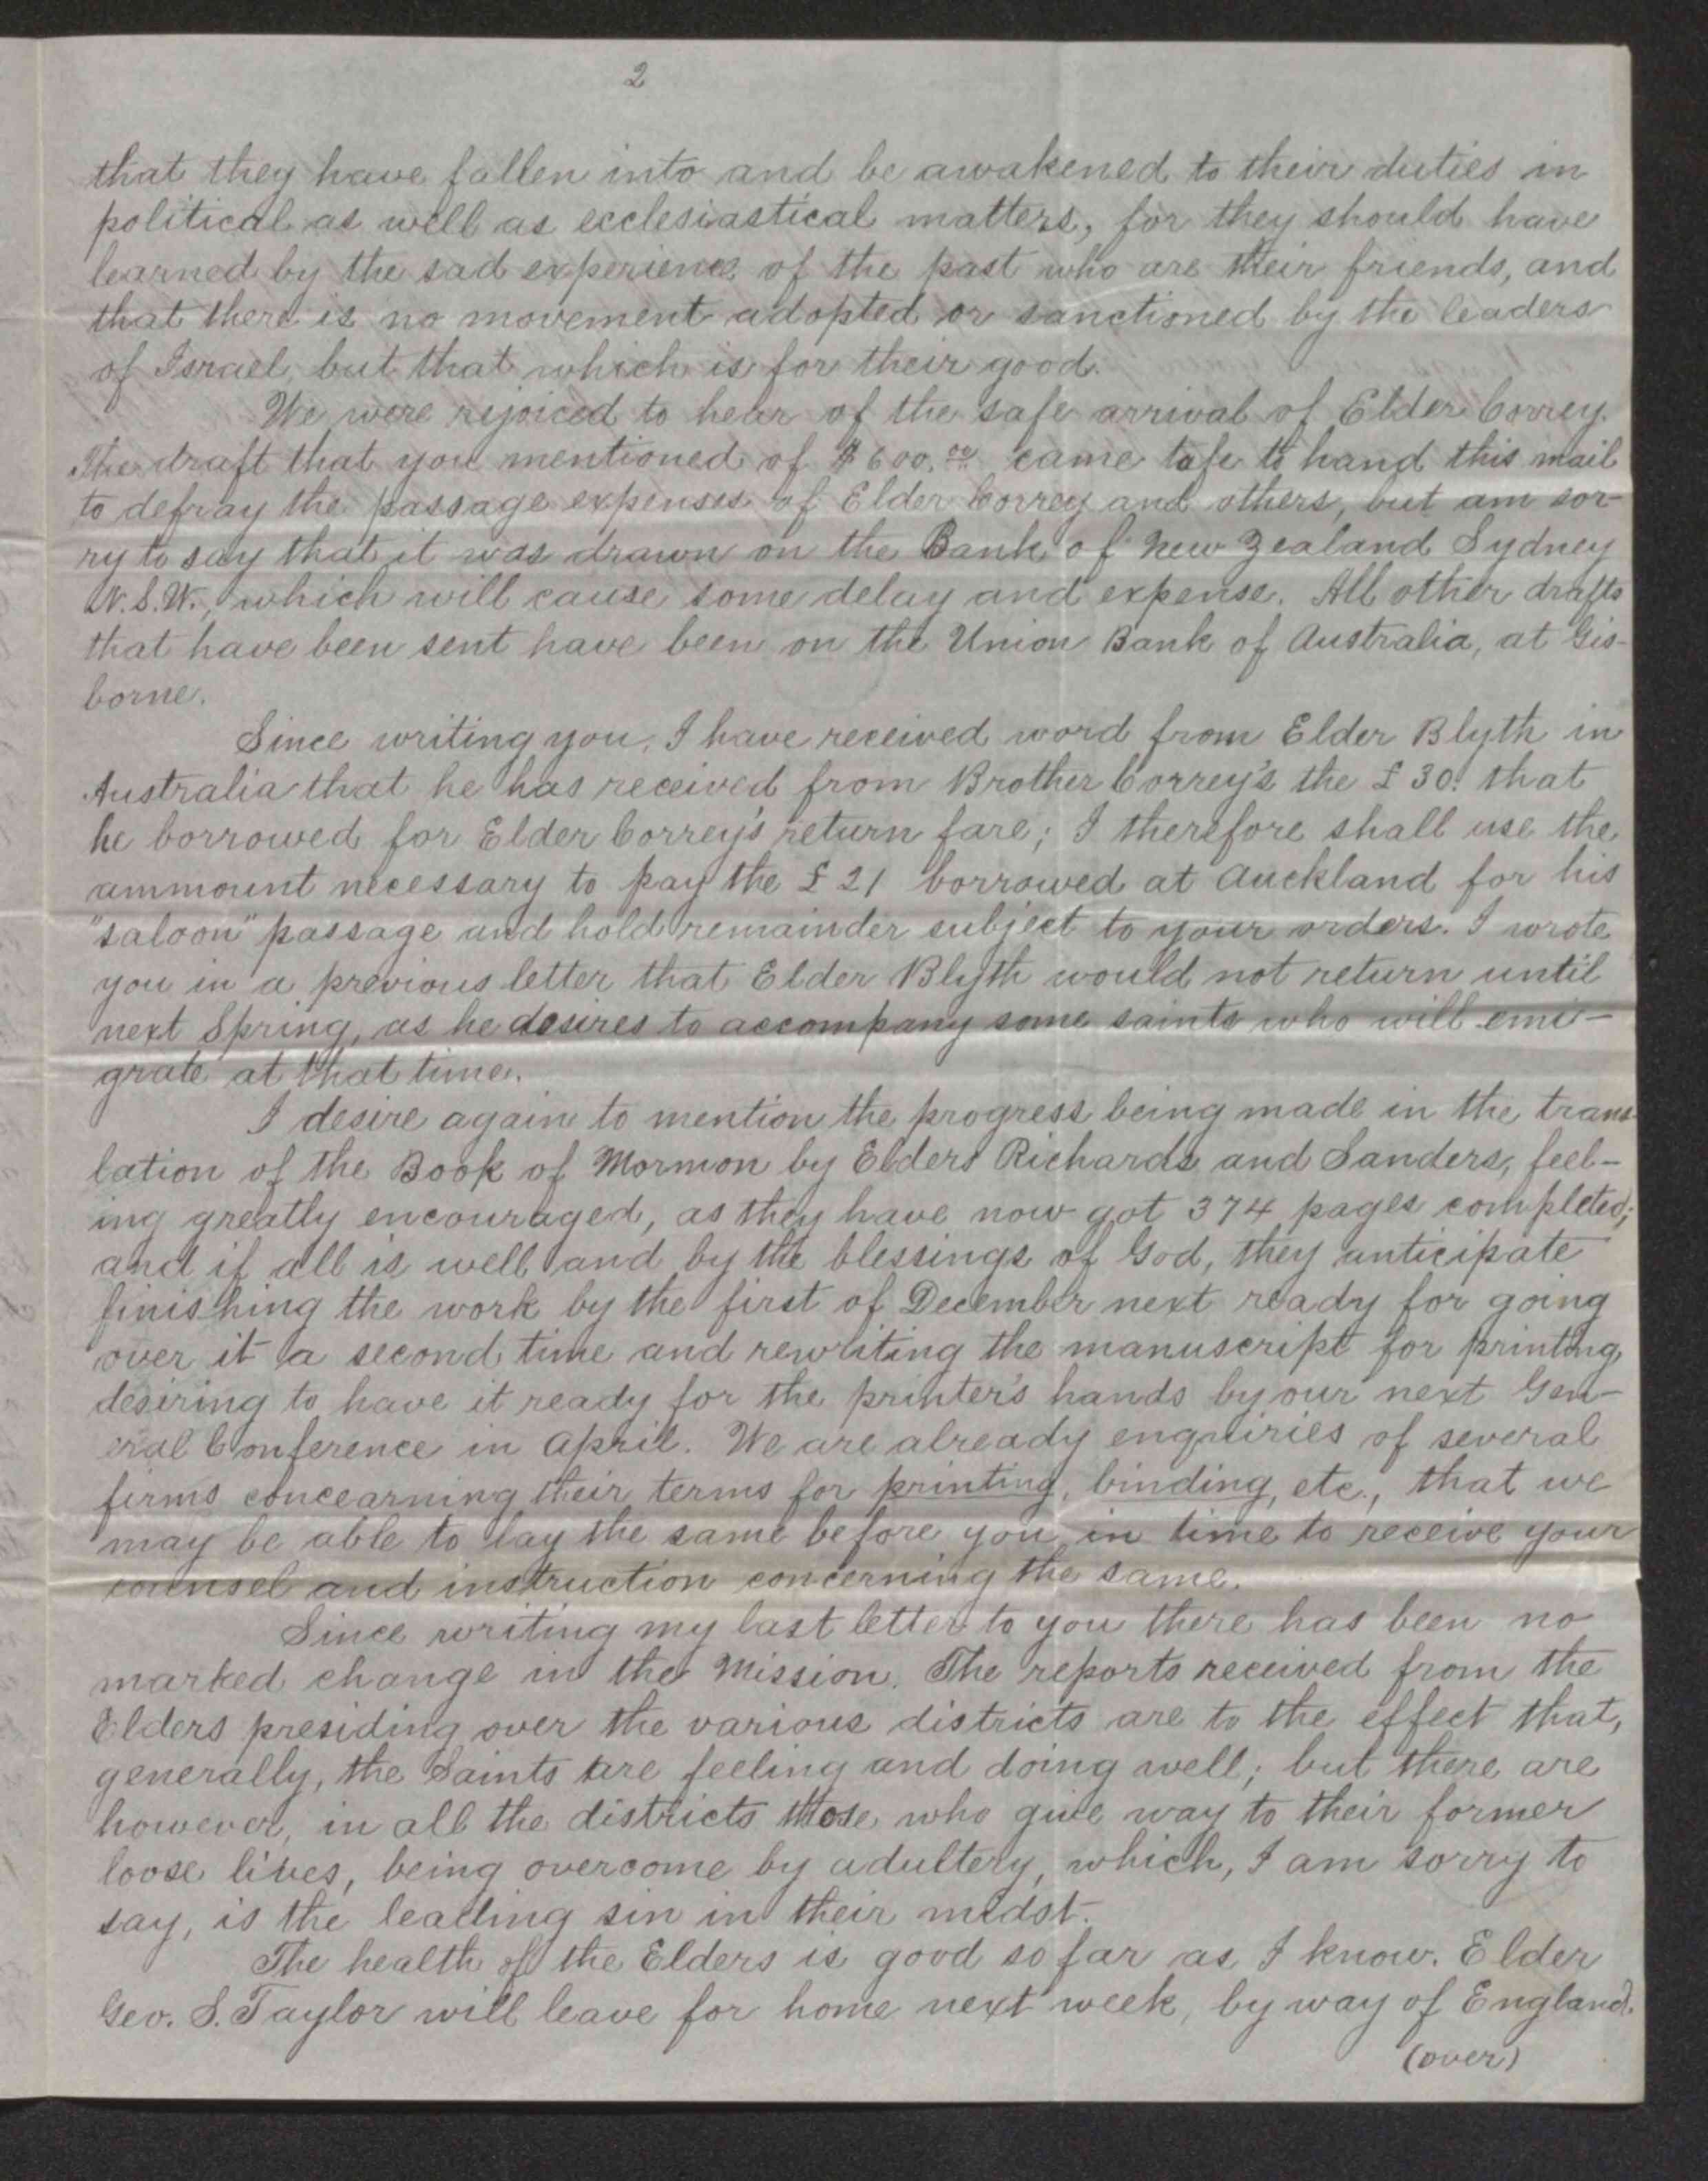 2
that they have fallen into and be awakened to their duties in
political as well as ecclesiastical matters, for they should have
learned by the sad experience of the past who are their friends, and
that there is no movement adopted or sanctioned by the leaders
of Israel, but that which is for their good.
We were rejoiced to hear of the safe arrival of Elder Correy.
The draft that you mentioned of $600.00 came safe to hand this mail
to defray the passage expenses of Elder Correy and others, but am sor-
ry to say that it was drawn on the Bank of New Zealand Sydney
N.S.W., which will cause some delay and expense. All other drafts
that have been sent have been on the Union Bank of Australia, at Gis-
borne.
Since writing you, I have received word from Elder Blyth in
Australia that he has received from Brother Correy's the £30. that
he borrowed for Elder Correy's return fare; I therefore shall use the
ammount necessary to pay the £21 borrowed at Auckland for his
"saloon" passage and hold remainder subject to your orders. I wrote
you in a previous letter that Elder Blyth would not return until
next Spring, as he desires to accompany some saints who will emi-
grate at that time.
I desire again to mention the progress being made in the trans-
lation of the Book of Mormon by Elders Richards and Sanders, feel-
ing greatly encouraged, as they have now got 374 pages completed;
and if all is well and by the blessings of God, they anticipate
finishing the work by the first of December next ready for going
over it a second time and rewriting the manuscript for printing,
desiring to have it ready for the printer's hands by our next Gen-
eral Conference in April. We are already enquiries of several
firms concearning their terms for printing, binding, etc., that we
may be able to lay the same before you in time to receive your
counsel and instruction concerning the same.
Since writing my last letter to you there has been no
marked change in the Mission. The reports received from the
Elders presiding over the various districts are to the effect that,
generally, the Saints are feeling and doing well; but there are
however, in all the districts those who give way to their former
loose lives, being overcome by adultery, which, I am sorry to
say, is the leading sin in their midst.
The health of the Elders is good so far as I know. Elder
Geo. S. Taylor will leave for home next week, by way of England.
(over)